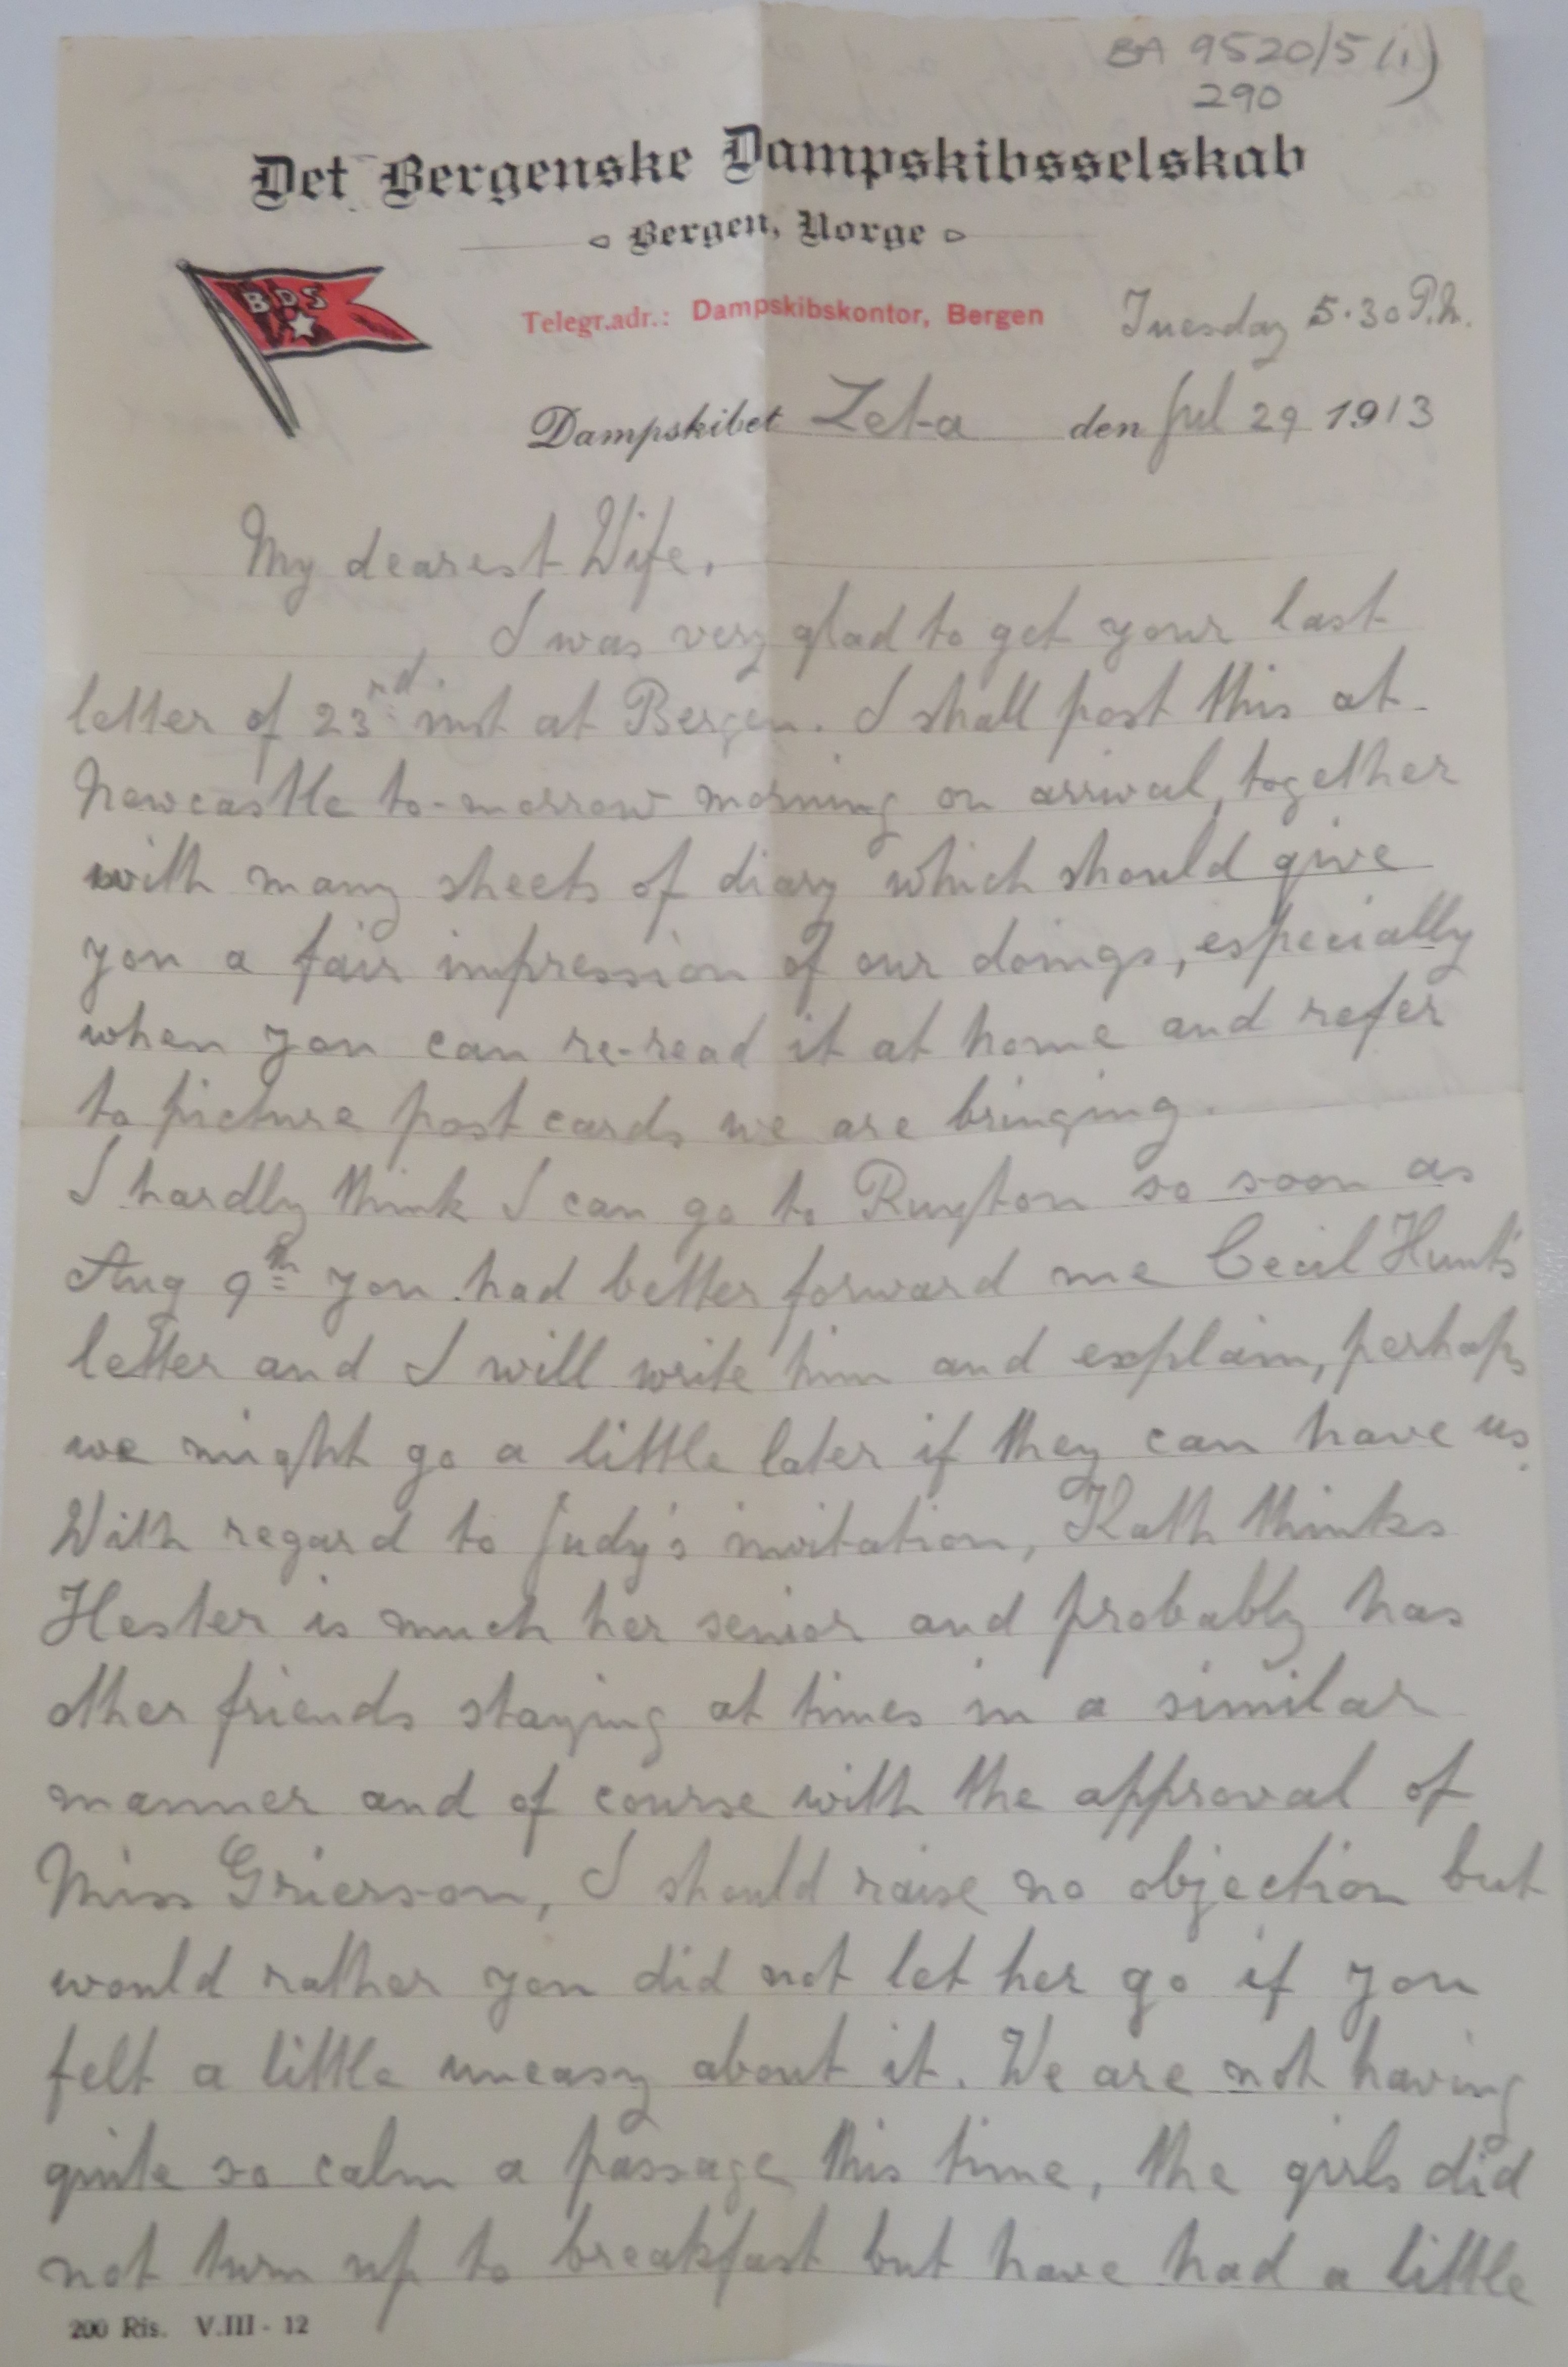 BA 9520/5(i)
290
Det Bergenske Dampskibsselskab
Bergen, Norge
BDS
Telegr.adr.: Dampskibskontor, Bergen
Tuesday 5.30 P.M.
Dampskibet Zeta den Jul 29 1913
My dearest Wife,
I was very glad to get your last
letter of 23rd inst at Bergen. I shall post this at
Newcastle to-morrow morning on arrival, together
with many sheets of diary which should give
you a fair impression of our doings, especially
when you can re-read it at home and refer
to picture post cards we are bringing.
I hardly think I can go to Ruyton so soon as
Aug 9th you had better forward me Cecil Hunt's
letter and I will write him and explain, perhaps
we might go a little later if they can have us.
With regard to Judy's invitation, Kath thinks
Hester is much her senior and probably has
other friends staying at times in a similar
manner and of course with the approval of
Miss Grierson, I should raise no objection but
would rather you did not let her go if you
felt a little uneasy about it. We are not having
quite so calm a passage this time, the girls did
not turn up to breakfast but have had a little
200 Ris. V.III - 12